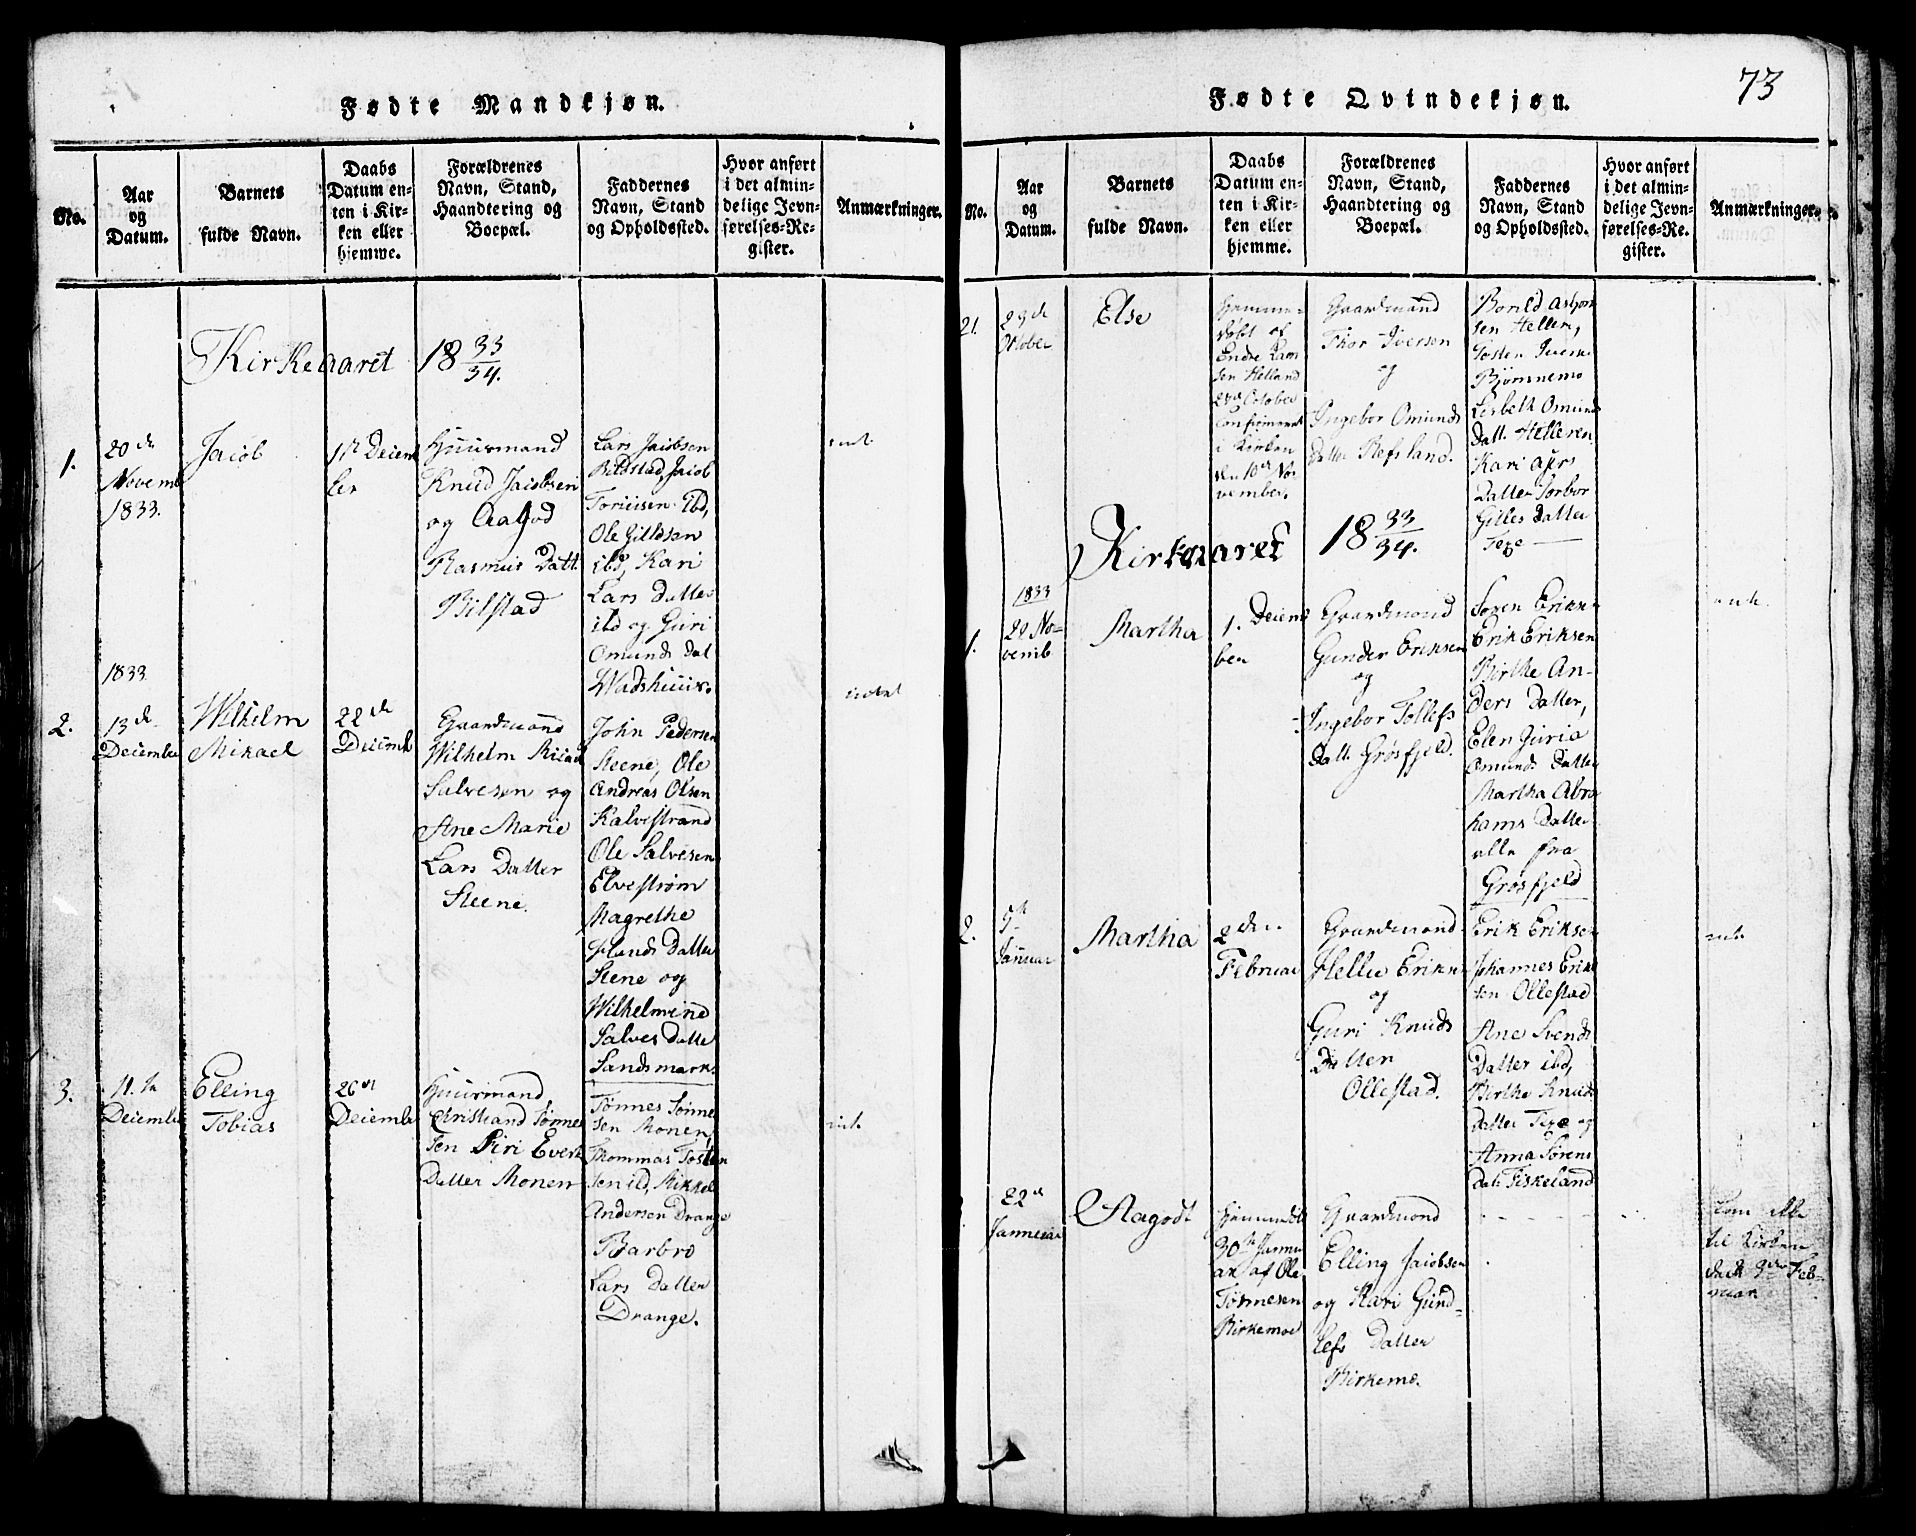 Fødte Mandkjøn.
No.
Aar
og
Datum.
Barnets
fulde Navn.
Daabs
Datum en-
ten i Kir-
ken eller
hjemme.
Forældrenes
Navn, Stand,
Haandtering og
Boepæl.
Faddernes
Navn, Stand
og Opholdssted.
Hvor anført
i det almin-
delige Jevn-
førelses-Re-
gister.
Anmærkninger.
Kirkeaaret 18 33/34.
1.
20de
Novemb
1833.
Jacob
1st Decem
ber
Huusmand
Knud Jacobsen
og Aagod
Rasmus Datt.
Bilstad
Lars Jacobsen
Bildstad, Jacob
ibd,
Ole Gilldsen
ibd, Kari
Lars Datter
ibd og Guri
Omunds Dat
Wadshuus.
1833
2.
13de
December
Wilhelm
Mikael
22de
Decemb
Gaardmand
Wilhelm
Salvesen og
Ane Marie
Lars Datter
Steene.
John Pedersen
Steene, Ole
Andreas Olsen
Kalvestrand
Ole Salvesen
Elvestrøm
Magrethe
Datter
Stene og
Wilhelmine
Salves Datte
Sandsmark
3.
11te
December
Elling
Tobias
26de
December
Huusmand
Christiand Tønne
sen Siri Everts
Datter Monen
Tønnes Tønne
sen Monen,
Thommas Tosten
sen ibd, Mikkel
Andersen Drange
Barbro
Lars Datter
Drange.
Fødte Qvindekjøn.
73
No.
Aar
og
Datum.
Barnets
fulde Navn.
Daabs
Datum en-
ten i Kir-
ken eller
hjemme.
Forældrenes
Navn, Stand,
Haandtering og
Boepæl.
Faddernes
Navn, Stand
og Opholdssted.
Hvor anført
i det almin-
delige Jevn-
førelses-Re-
gister.
Anmærkninger.
21.
October
Else
Hjemme-
døbt af
Endre Lars
sen Helland
October
confirmeret
i Kirken
den 10de No-
vember.
Gaardmand
Thor Iversen
og
Ingebor Omunds
Datter Refsland.
Boruld Asbjørn
sen Helleren,
Tosten Iversen
Bjørnnemo
Lisbeth Omunds
Datt. Helleren
Kari
Datter Torbor
Gilles Datter
Texe
Kirkeaaret 18 33/34.
1833
1.
20 No-
vemb
Martha
1. Decem
ber
Gaardmand
Gunder Eriksen
og
Ingebor Tollefs
Datt. Grøsfjeld.
Søren Eriksen
Erik Eriksen
Birthe An-
ders Datter,
Elen Juria
Omunds Datter
Martha Abra
hams Datter
alle fra
Grøsfjeld
2.
5te
Januar
Martha
2den
Februar
Gaardmand
Helle Eriksen
og
Guri Knuds
Datter
Ollestad.
Erik Eriksen
Johannes Erik
sen Ollestad
Ane Svends
Datter ibd,
Birthe Knuds
Datter Texe og
Anna Sørens
Dat. Fiskeland
22de
Januar
Aagodt
Hjemmedøbt
30te Janu
ar af Ole
Tønnesen
Birkemoe
Gaardmand
Elling Jacobsen
og Kari Gund-
lefs Datter
Birkemo.
Kom ikke
til Kirken
Feb-
ruar